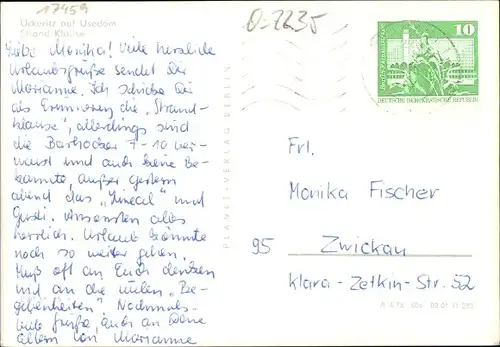 17459
Ückeritz auf Usedom
Strand Klause
0-2235
Liebe Monika! Viele herzliche
Urlaubsgrüße sendet Dir
Marianne. Ich schicke Dir
als Erinnerung die „Strand-
klause", allerdings sind
die Barhocker 7-10 ver-
waist und auch keine Be-
kannte, außer gestern
abend das „Lineal" und
Gusti. Ansonsten alles
herrlich. Urlaub könnte
noch so weiter gehen.
Muß oft an Euch denken
und an die vielen „Be-
gebenheiten". Nochmals
viele Grüße, auch an Deine
Eltern von Marianne
PLANET-VERLAG BERLIN
10
DEUTSCHE DEMOKRATISCHE REPUBLIK
Frl.
Monika Fischer
95 Zwickau
Klara-Zetkin-Str. 52